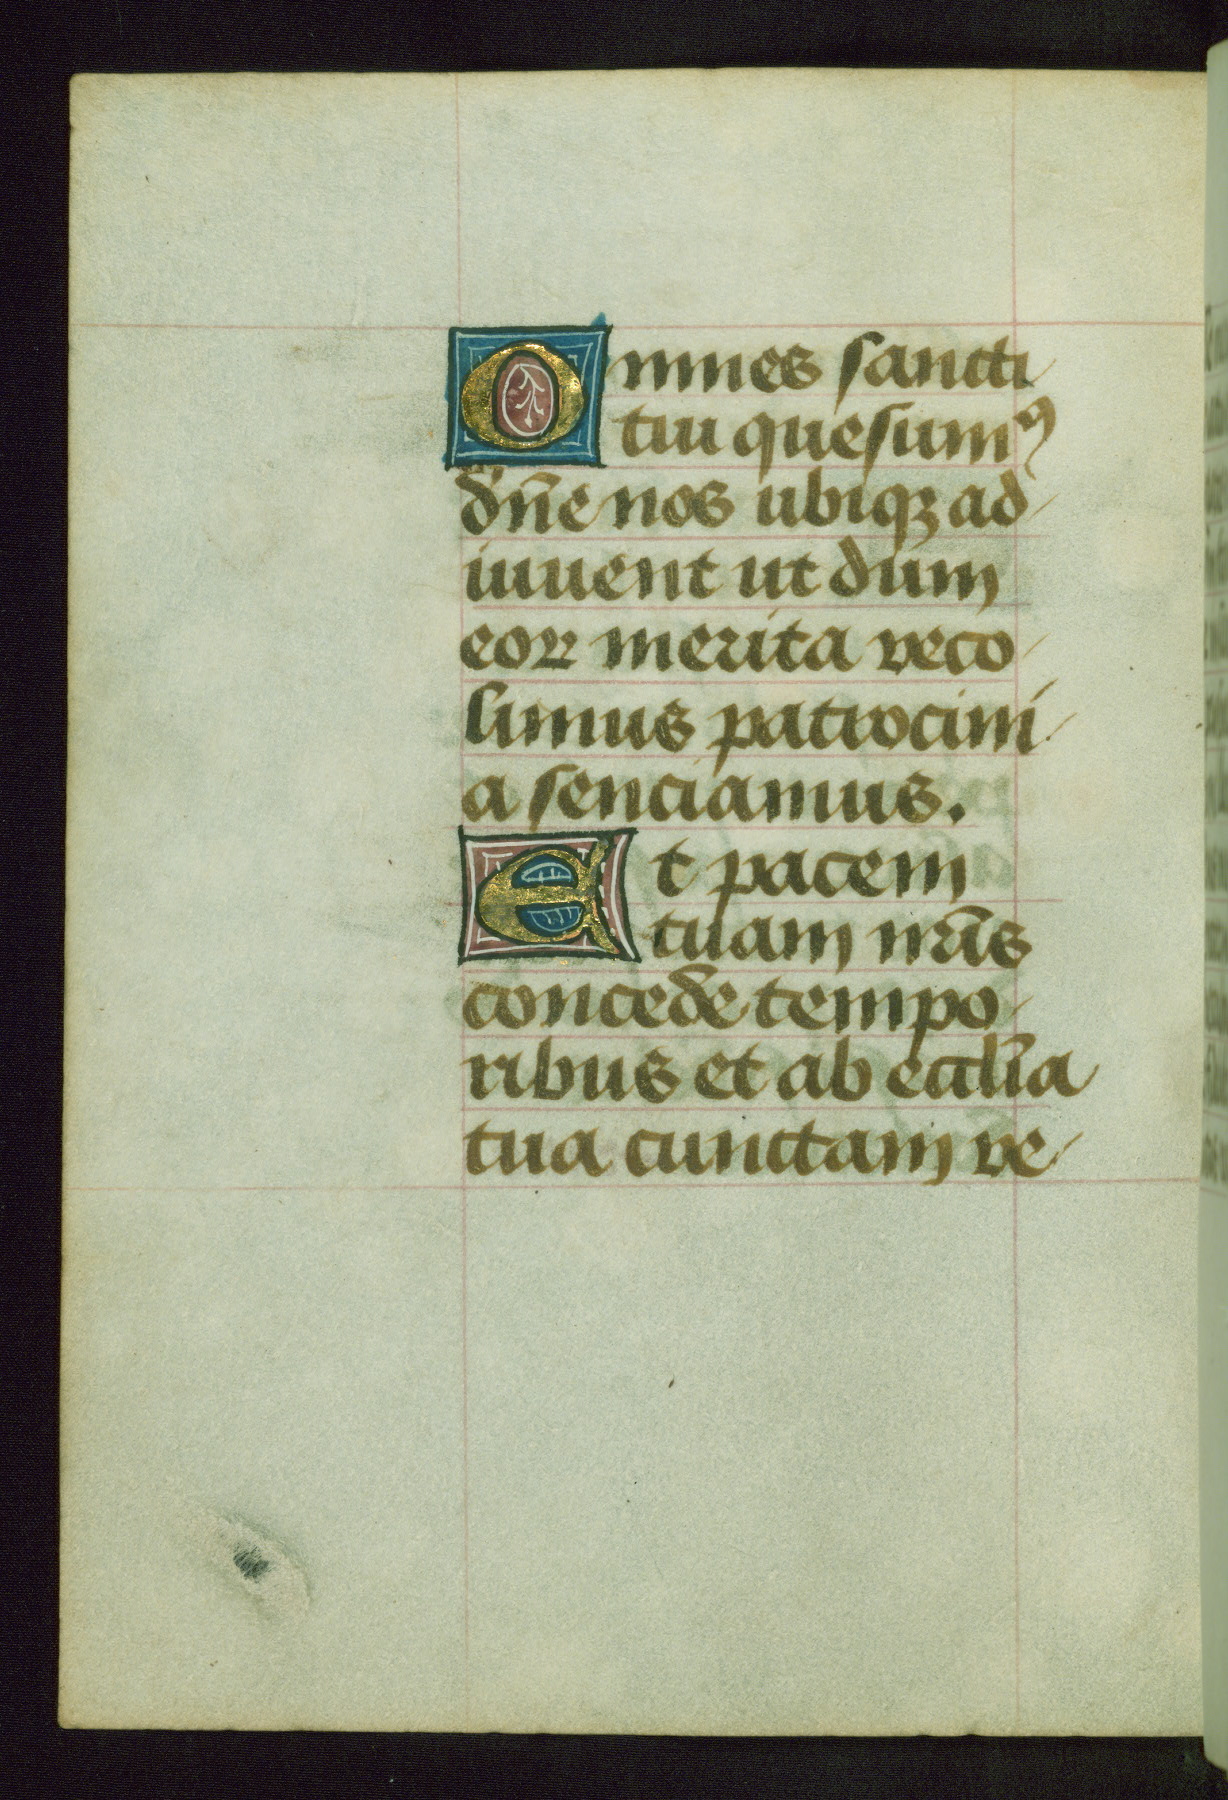 Omnes sancti
tui quesumꝰ
dn̄e nos ubiqꝫ ad
iuuent ut dum
eoꝝ merita reco
limus patrocini
a senciamus.
Et pacem
tuam nr̄is
concede tempo
ribus et ab eccl̄ia
tua cunctam re